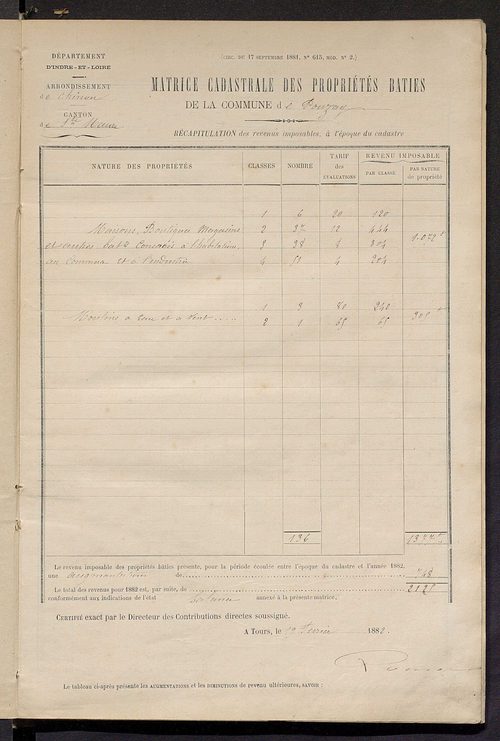 (CIRC. DU 17 SEPTEMBRE 1881, N° 615, MOD. N° 2.)
DÉPARTEMENT
D'INDRE-ET-LOIRE
ARRONDISSEMENT
de Chinon
CANTON
de Ste Maure
MATRICE CADASTRALE DES PROPRIÉTÉS BATIES
DE LA COMMUNE de Pouzay
RÉCAPITULATION des revenus imposables, à l'époque du cadastre
NATURE DES PROPRIÉTÉS CLASSES NOMBRE TARIF des ÉVALUATIONS REVENU IMPOSABLE
PAR CLASSE PAR NATURE de propriété
1 6 20 120
Maisons, Boutiques Magasins 2 37 12 444
et autres bats consacrés à l'habitation, 3 38 8 304 1.072
au commerce et à l'industrie 4 51 4 204
1 3 80 240
Moulins à eau et à vent 2 1 65 65 305
136 1377
Le revenu imposable des propriétés bâties présente, pour la période écoulée entre l'époque du cadastre et l'année 1882,
une augmentation de 748
Le total des revenus pour 1882 est, par suite, de 2125
conformément aux indications de l'état annexé à la présente matrice.
CERTIFIÉ exact par le Directeur des Contributions directes soussigné.
A TOURS, le Février 1882.
Le tableau ci-après présente les AUGMENTATIONS et les DIMINUTIONS de revenu ultérieures, SAVOIR :